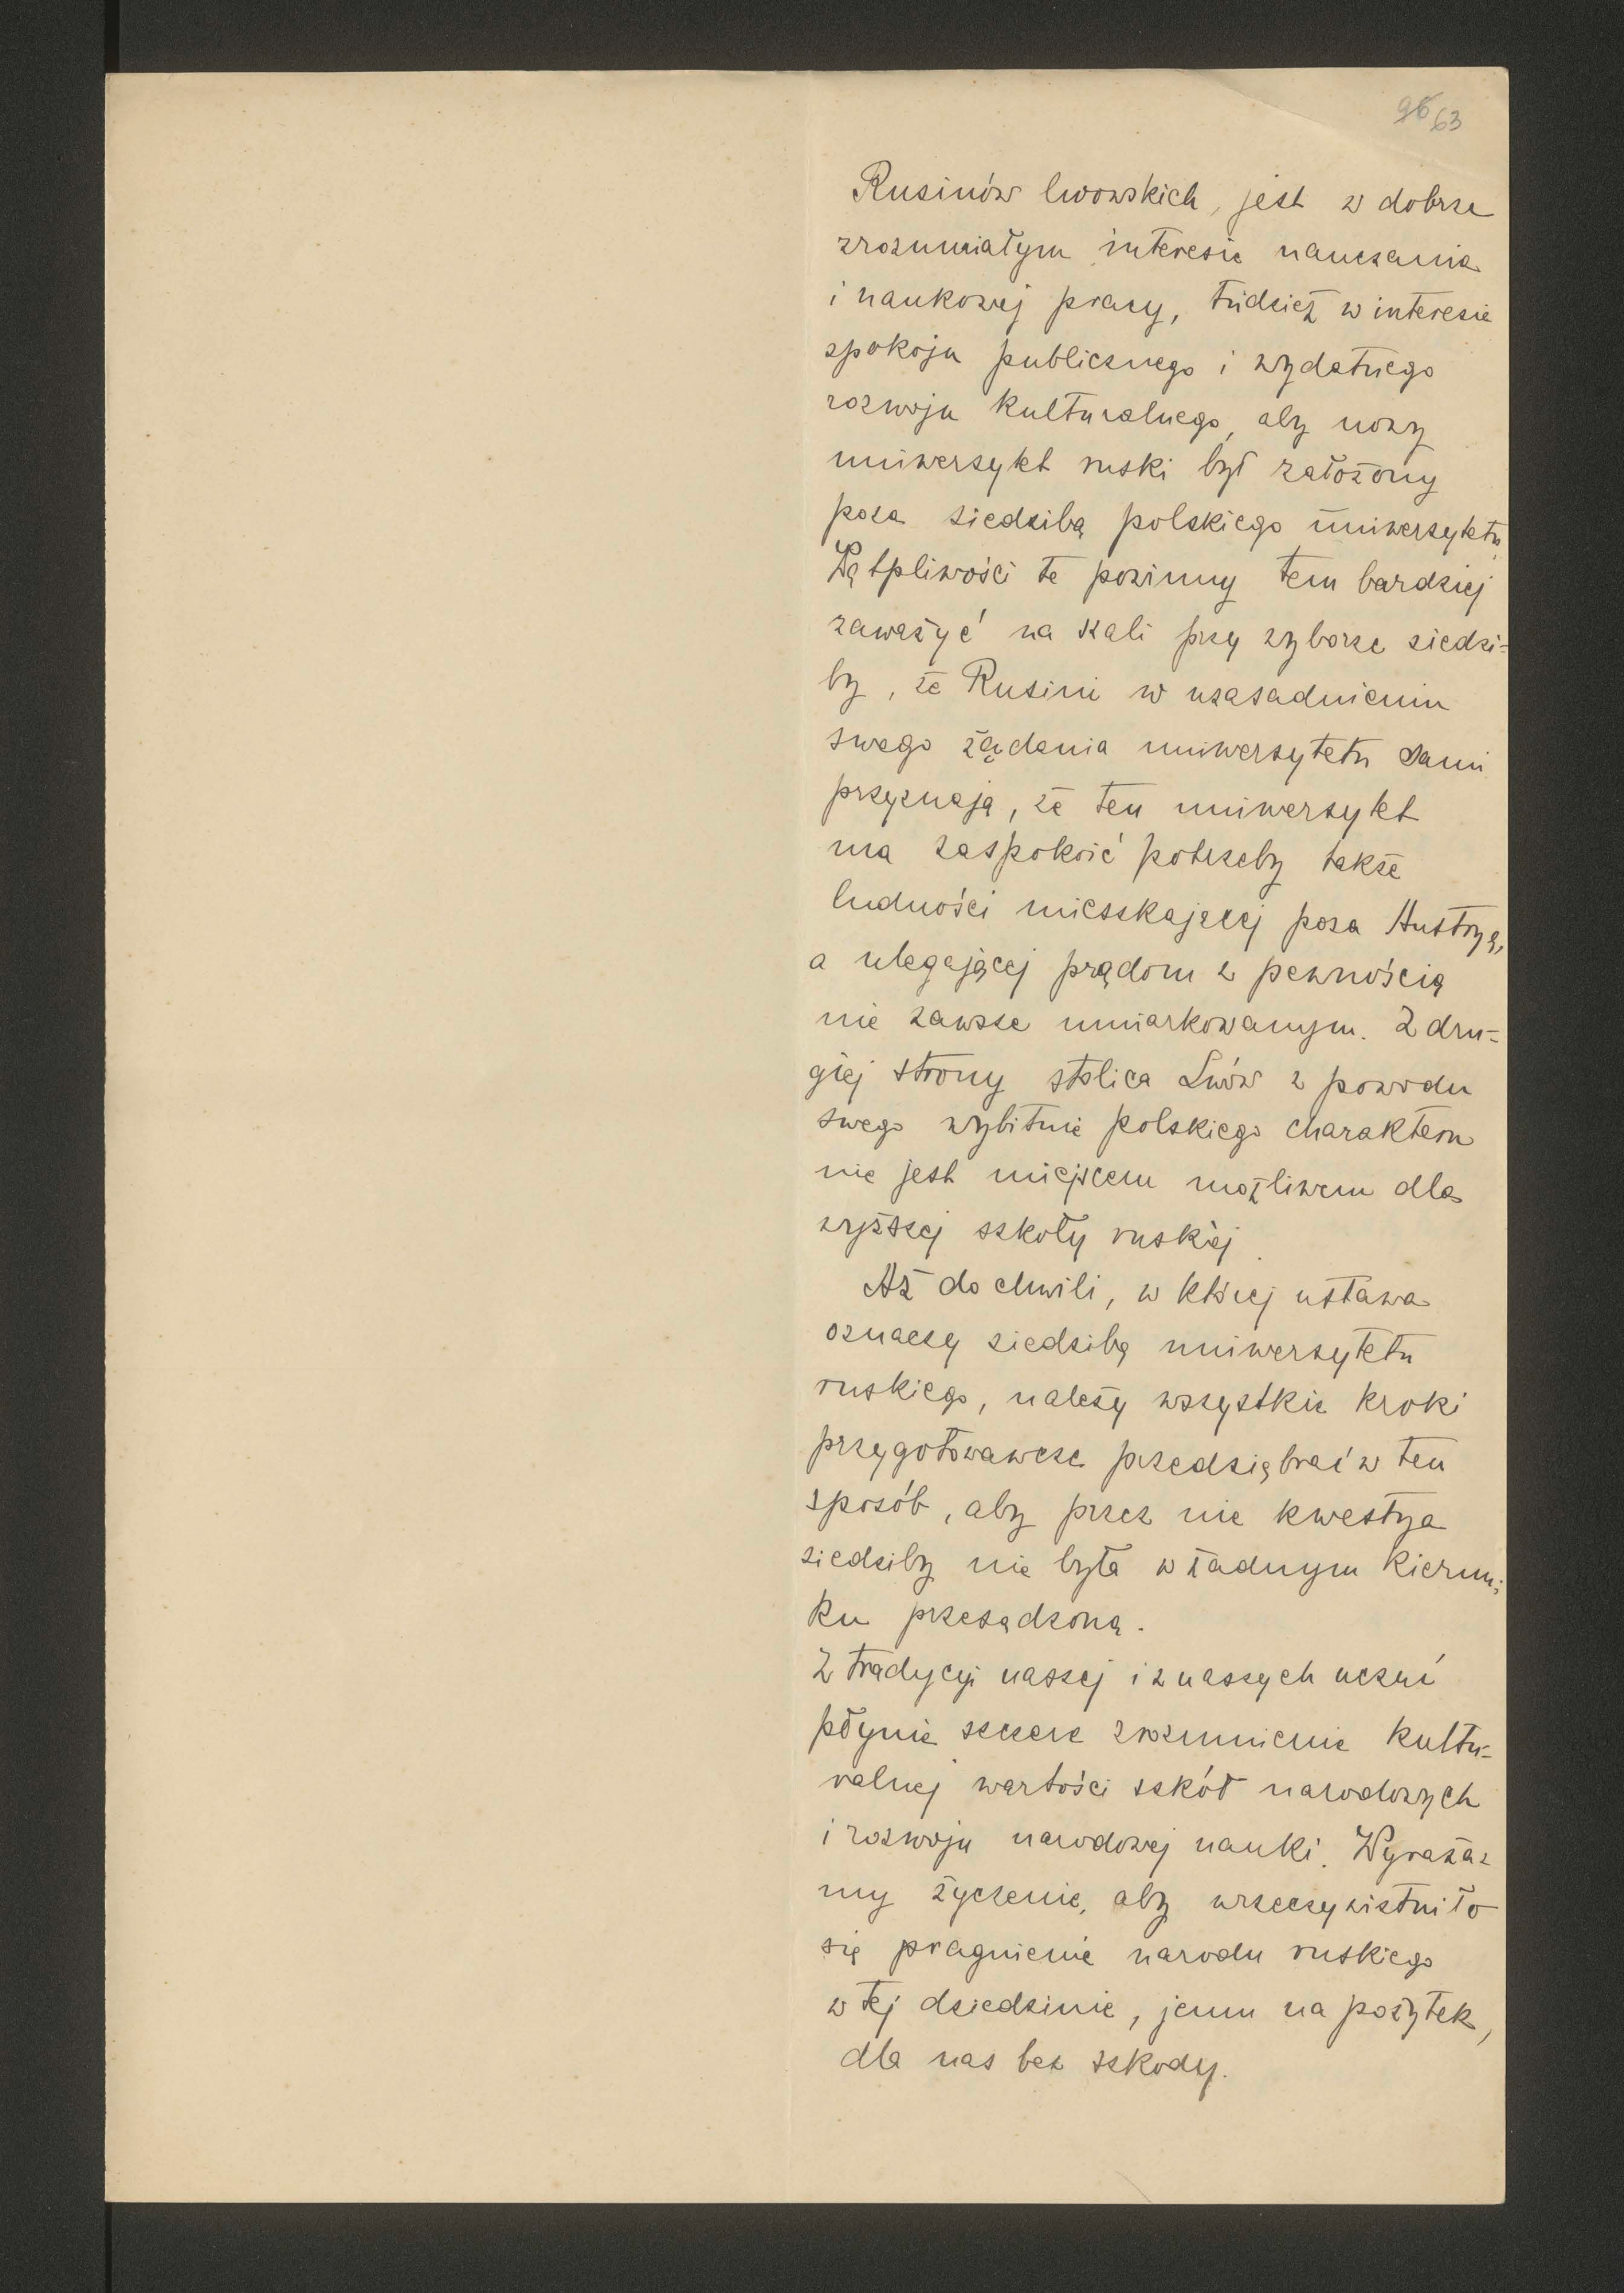 96 63
Rusinów lwowskich, jest w dobrze
zrozumiałym interesie nauczania
i naukowej pracy, tudzież w interesie
spokoju publicznego i wydatnego
rozwoju kulturalnego, aby nowy
uniwersytet ruski był założony
poza siedzibą polskiego uniwersytetu.
Wątpliwości te powinny tem bardziej
zaważyć na szali przy wyborze siedzi-
by, że Rusini w uzasadnieniu
swego żądania uniwersytetu sami
przyznają, że ten uniwersytet
ma zaspokoić potrzeby także
ludności mieszkającej poza Austryą,
a ulegającej prądom z pewnością
nie zawsze umiarkowanym. Z dru-
giej strony stolica Lwów z powodu
swego wybitnie polskiego charakteru
nie jest miejscem możliwem dla
wyższej szkoły ruskiej.
Aż do chwili, w której ustawa
oznaczy siedzibę uniwersytetu
ruskiego, należy wszystkie kroki
przygotowawcze przedsiębrać w ten
sposób, aby przez nie kwestya
siedziby nie była w żadnym kierun-
ku przesądzoną.
Z tradycyi naszej i z naszych uczuć
płynie szczere zrozumienie kultu-
ralnej wartości szkół narodowych
i rozwoju narodowej nauki. Wyraża-
my życzenie, aby urzeczywistniło
się pragnienie narodu ruskiego
w tej dziedzinie, jemu na pożytek,
dla nas bez szkody.